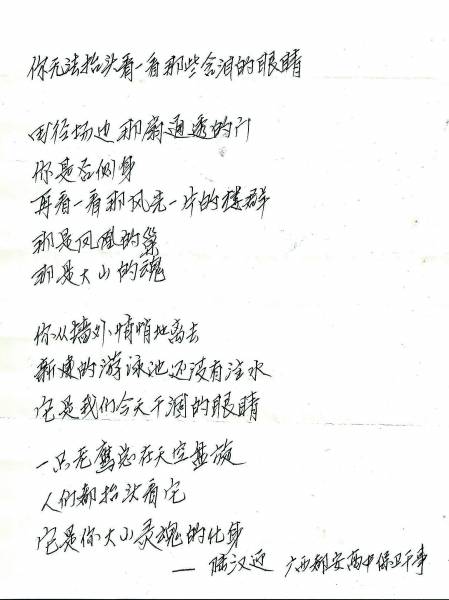 你无法抬头看一看那些含泪的眼睛
田径场边那扇通透的门
你是否侧身
再看一看那风光一片的楼群
那是凤凰的巢
那是大山的魂
你从墙外悄悄地离去
新建的游泳池还没有注水
它是我们今天干涸的眼睛
一只老鹰总在天空盘旋
人们都抬头看它
它是你大山灵魂的化身
—— 陆汉迎 广西都安高中保卫干事